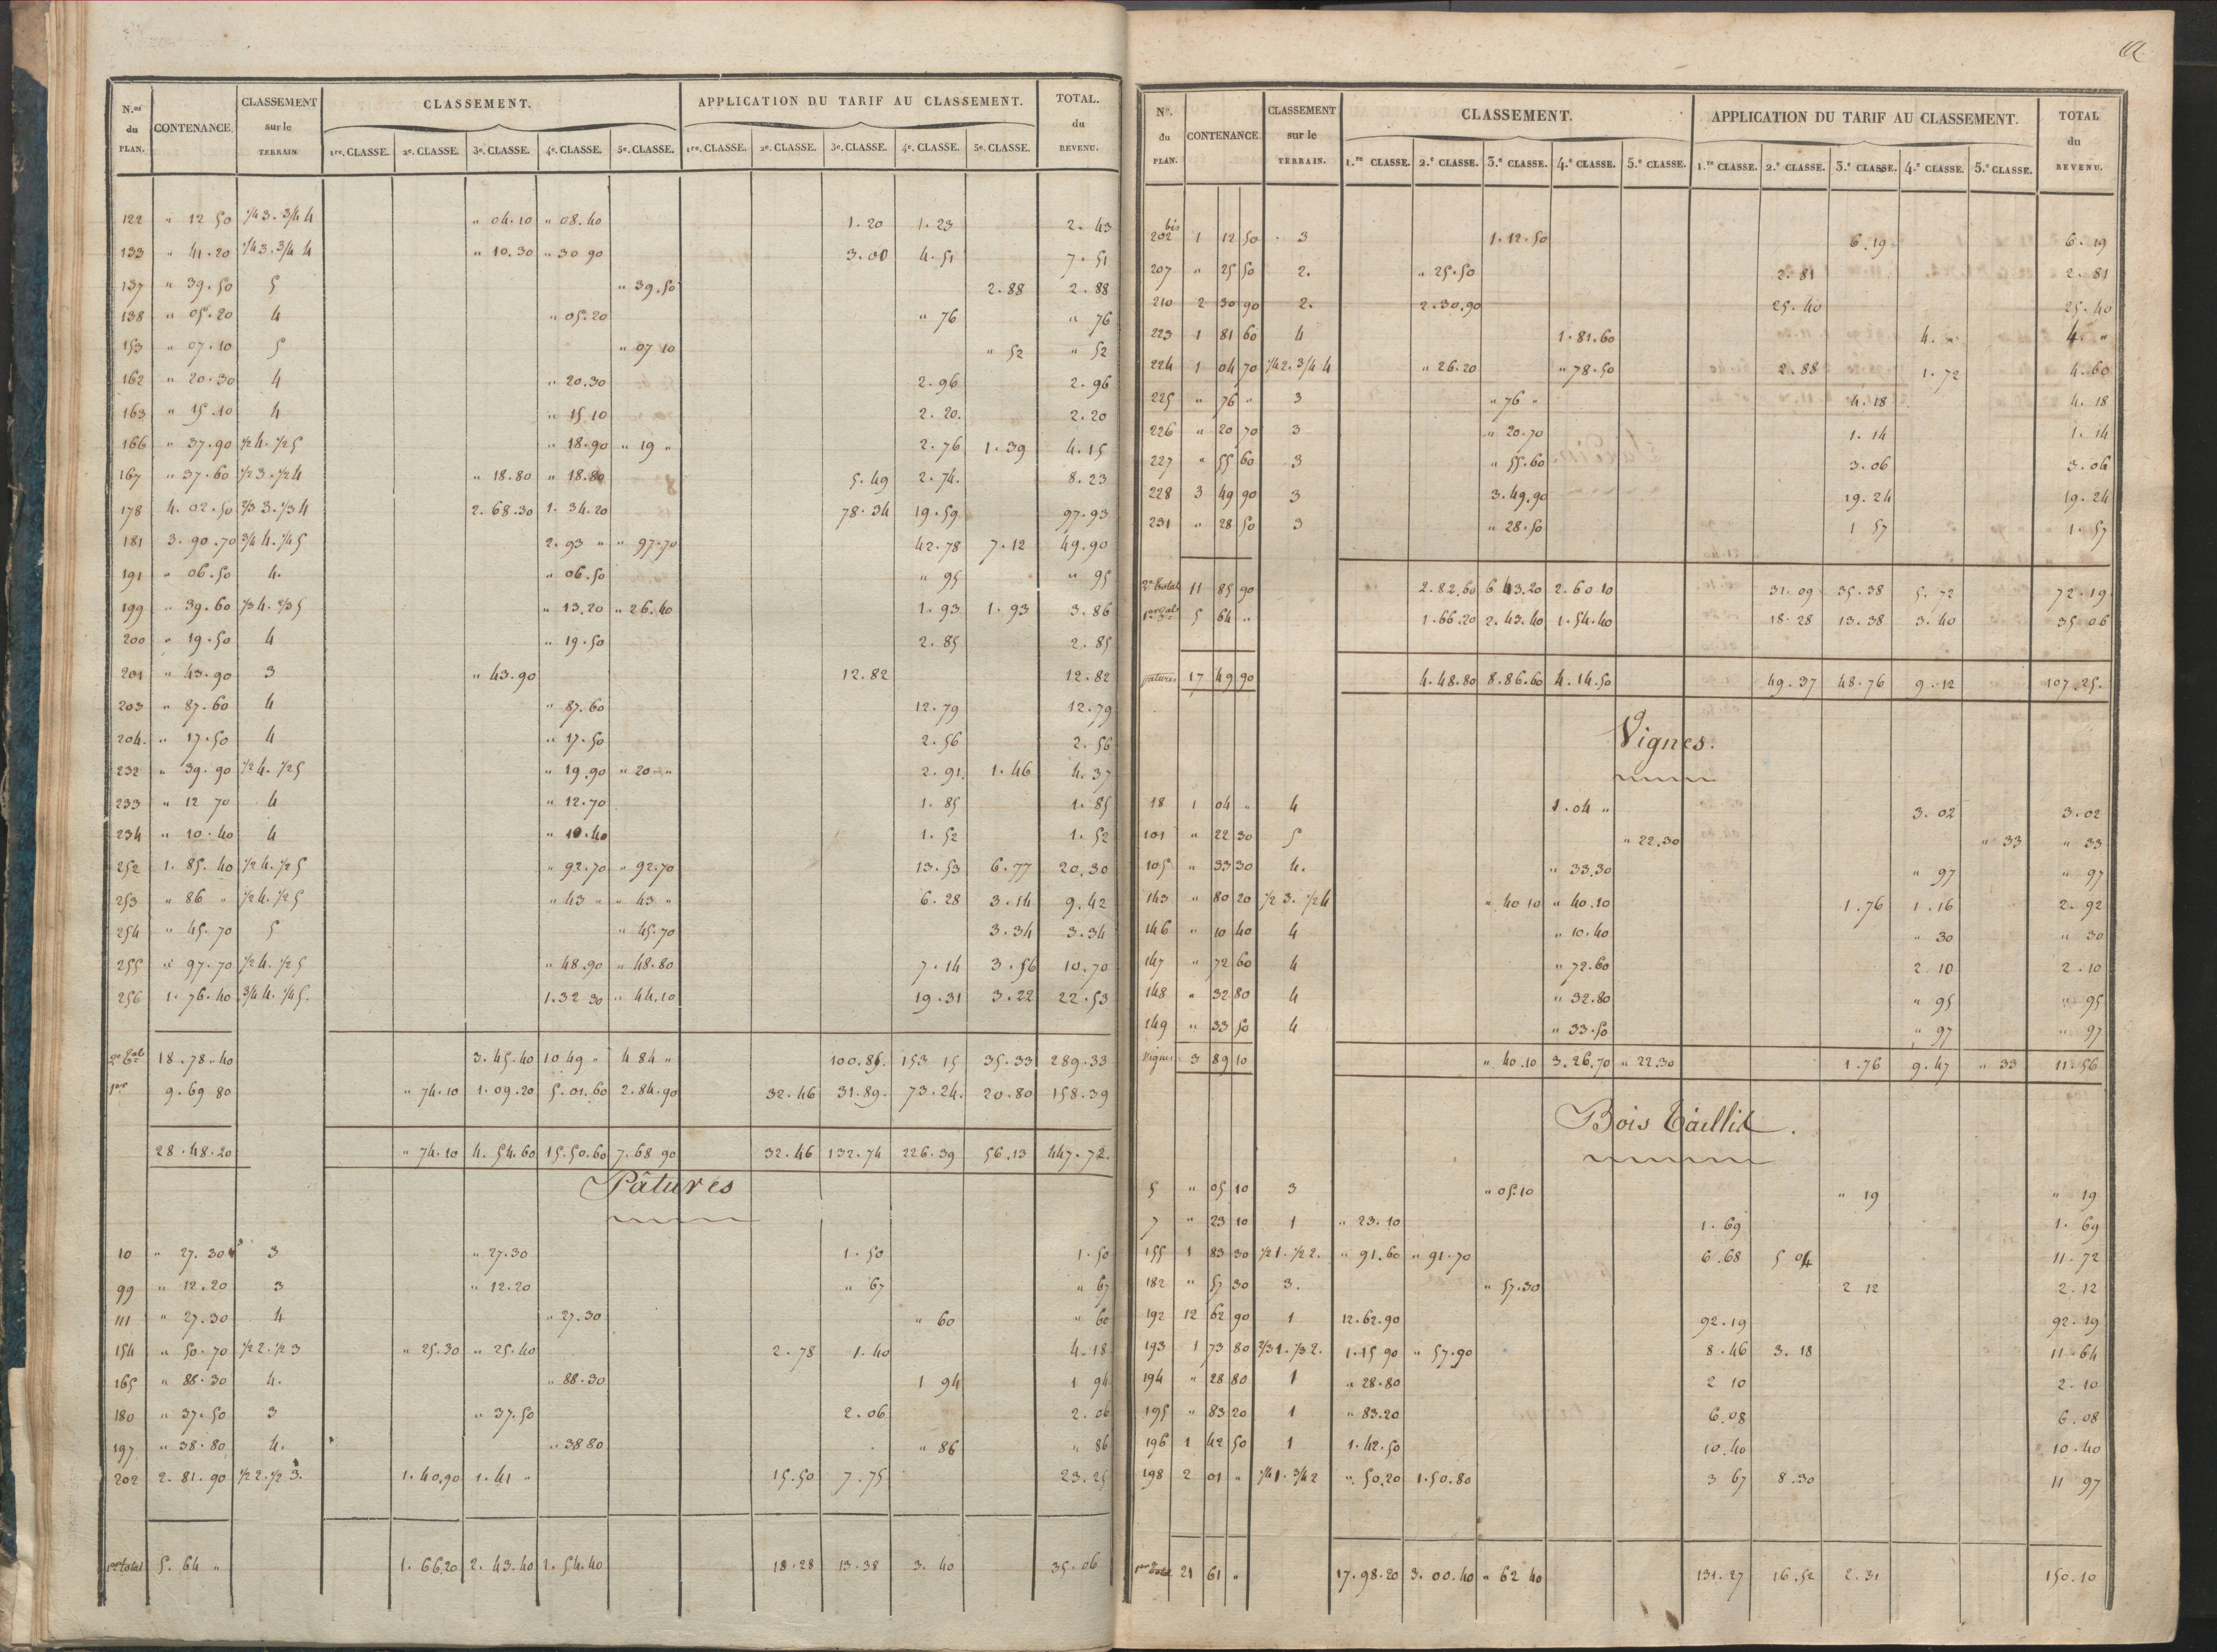 N.os du PLAN. CONTENANCE. CLASSEMENT sur le TERRAIN. CLASSEMENT. APPLICATION DU TARIF AU CLASSEMENT. TOTAL. du REVENU.
1re. CLASSE. 2e. CLASSE. 3e. CLASSE. 4e. CLASSE. 5e. CLASSE. 1re. CLASSE. 2e. CLASSE. 3e. CLASSE. 4e. CLASSE. 5e. CLASSE.
122 " 12 50 1/4 3. 3/4 4 " 04.10 " 08.40 1.20 1.23 2.43
133 " 41.20 1/4 3. 3/4 4 " 10.30 " 30 90 3.00 4.51 7.51
137 " 39.50 5 " 39.50 2.88 2.88
138 " 05.20 4 " 05.20 " 76 " 76
153 " 07.10 5 " 07 10 " 52 " 52
162 " 20.30 4 " 20.30 2.96 2.96
163 " 15.10 4 " 15 10 2.20. 2.20
166 " 37.90 1/2 4. 1/2 5 " 18.90 " 19 " 2.76 1.39 4.15
167 " 37.60 1/2 3. 1/2 4 " 18.80 " 18.80 5.49 2.74. 8.23
178 4.02.50 2/3 3. 1/3 4 2.68.30 1.34.20 78.34 19.59 97.93
181 3.90.70 3/4 4. 1/4 5 2.93 " " 97.70 42.78 7.12 49.90
191 " 06.50 4. " 06.50 " 95 " 95
199 " 39.60 1/3 4. 2/3 5 " 13.20 " 26.40 1.93 1.93 3.86
200 " 19.50 4 " 19.50 2.85 2.85
201 " 43.90 3 " 43.90 12.82 12.82
203 " 87.60 4 " 87.60 12.79 12.79
204. " 17.50 4 " 17.50 2.56 2.56
232 " 39.90 1/2 4. 1/2 5 " 19.90 " 20 " 2.91. 1.46 4.37
233 " 12 70 4 " 12.70 1.85 1.85
234 " 10.40 4 " 10.40 1.52 1.52
252 1.85.40 1/2 4. 1/2 5 " 92.70 " 92.70 13.53 6.77 20.30
253 " 86 " 1/2 4. 1/2 5 " 43 " " 43 " 6.28 3.14 9.42
254 " 45.70 5 " 45.70 3.34 3.34
255 " 97.70 1/2 4. 1/2 5 " 48.90 " 48.80 7.14 3.56 10.70
256 1.76.40 3/4 4. 1/4 5. 1.32 30 " 44.10 19.31 3.22 22.53
18.78.40 3.45.40 10 49 " 4 84 " 100.86. 153 15 35.33 289.33
1er 9.69 80 " 74.10 1.09.20 5.01.60 2.84.90 32.46 31.89. 73.24. 20.80 158.39
28.48.20 " 74.10 4.54.60 15.50.60 7.68 90 32.46 132.74 226.39 56.13 447.72.
Pâtures
10 " 27.30 3 " 27.30 1.50 1.50
99 " 12.20 3 " 12.20 " 67 " 67
111 " 27.30 4 " 27.30 " 60 " 60
154 " 50.70 1/2 2. 1/2 3 " 25.30 " 25.40 2.78 1.40 4.18
165 " 88.30 4. " 88.30 1 94 1 94
180 " 37.50 3 " 37.50 2.06 2.06
197 " 38.80 4. " 38 80 " 86 " 86
202 2.81.90 1/2 2. 1/2 3. 1.40.90 1.41 " 15.50 7.75 23.25
1er total 5.64 " 1.66.20 2.43.40 1.54.40 18.28 13.38 3.40 35.06
No. du PLAN. CONTENANCE CLASSEMENT sur le TERRAIN. CLASSEMENT. APPLICATION DU TARIF AU CLASSEMENT. TOTAL du REVENU.
1.re CLASSE. 2.e CLASSE. 3.e CLASSE. 4.e CLASSE. 5.e CLASSE. 1.re CLASSE. 2.e CLASSE. 3.e CLASSE. 4.e CLASSE. 5.e CLASSE.
202 bis 1 12 50 3 1.12.50 6.19 6.19
207 " 25 50 2. " 25.50 2.81 2.81
210 2 30 90 2. 2.30.90 25.40 25.40
223 1 81 60 4 1.81.60 4. " 4. "
224 1 04 70 1/4 2. 3/4 4 " 26.20 " 78.50 2.88 1.72 4.60
225 " 76 " 3 " 76 " 4.18 4.18
226 " 20 70 3 " 20.70 1.14 1.14
227 " 55 60 3 " 55.60 3.06 3.06
228 3 49 90 3 3.49.90 19.24 19.24
231 " 28 50 3 " 28.50 1 57 1.57
2e total 11 85 90 2.82.60 6 43.20 2.60 10 31.09 35.38 5.72 72.19
5 64 " 1.66.20 2.43.40 1.54.40 18.28 13.38 3.40 35 06
pâtures 17 49 90 4.48.80 8.86.60 4.14.50 49.37 48.76 9.12 107.25.
Vignes.
18 1 04 " 4 1.04 " 3.02 3.02
101 " 22 30 5 " 22.30 " 33 " 33
105 " 33 30 4. " 33.30 " 97 " 97
143 " 80 20 1/2 3. 1/2 4 " 40 10 " 40.10 1.76 1.16 2.92
146 " 10 40 4 " 10.40 " 30 " 30
147 " 72 60 4 " 72.60 2.10 2.10
148 " 32 80 4 " 32.80 " 95 " 95
149 " 33 50 4 " 33.50 " 97 " 97
Vignes 3 89 10 " 40.10 3.26.70 " 22.30 1.76 9.47 " 33 11.56
Bois Taillis.
5 " 05 10 3 " 05.10 " 19 " 19
7 " 23 10 1 " 23.10 1.69 1.69
155 1 83 30 1/2 1. 1/2 2. " 91.60 " 91.70 6.68 5 04 11.72
182 " 57 30 3. " 57.30 2 12 2.12
192 12 62 90 1 12.62.90 92.19 92.19
193 1 73 80 2/3 1. 1/3 2. 1.15 90 " 57.90 8.46 3.18 11.64
194 " 28 80 1 " 28.80 2 10 2.10
195 " 83 20 1 " 83.20 6.08 6.08
196 1 42 50 1 1.42.50 10.40 10.40
198 2 01 " 1/4 1. 3/4 2 " 50.20 1.50.80 3 67 8.30 11 97
1er total 21 61 " 17.98.20 3.00.40 " 62 40 131.27 16.52 2.31 150.10